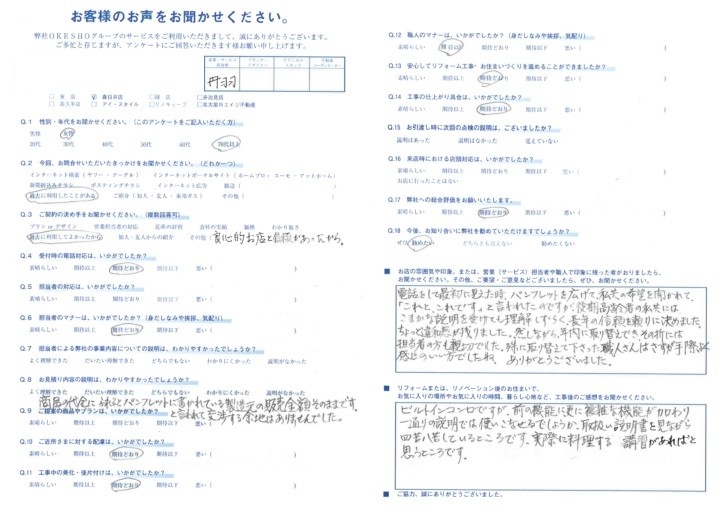 お客様のお声をお聞かせください。
弊社OKESHOグループのサービスをご利用いただきまして、誠にありがとうございます。
ご多忙と存じますが、アンケートにご回答いただきます様お願い申し上げます。
丹羽
□東店 ☑春日井店 □緑店 □多治見店
□長久手店 □アイ・スタイル □リノキューブ □名古屋ロエイジ不動産
Q.1 性別・年代をお聞かせください。(このアンケートをご記入いただく方)
男性 女性
20代 30代 40代 50代 60代 70代以上
Q.2 今回、お問合せいただいたきっかけをお聞かせください。(どれか一つ)
インターネット検索(ヤフー・グーグル) インターネットポータルサイト(ホームプロ・スーモ・アットホーム)
新聞折込みチラシ ポスティングチラシ インターネット広告 雑誌( )
過去に利用したことがある ご紹介(知人・友人・東邦ガス) その他( )
Q.3 ご契約の決め手をお聞かせください。(複数回答可)
プラン or デザイン 営業担当者の対応 近所の評判 会社の実績 価格 わかり易さ
過去に利用してよかったから 知人・友人からの紹介 その他(良心的お店と信頼があったから。
Q.4 受付時の電話対応は、いかがでしたか?
素晴らしい 期待以上 期待どおり 期待以下 悪い( )
Q.5 担当者の対応は、いかがでしたか?
素晴らしい 期待以上 期待どおり 期待以下 悪い( )
Q.6 担当者のマナーは、いかがでしたか?(身だしなみや挨拶、気配り)
素晴らしい 期待以上 期待どおり 期待以下 悪い( )
Q.7 担当者による弊社の事業内容についての説明は、わかりやすかったでしょうか?
よく理解できた だいたい理解できた どちらでもない わかりにくかった 説明がなかった
Q.8 お見積り内容の説明は、わかりやすかったでしょうか?
よく理解できた だいたい理解できた どちらでもない わかりにくかった 説明がなかった
商品の代金に
パンフレットに書かれている製造元の販売金額そのままです。
Q.9 ご提案の商品やプランは、いかがでしたか?
と言われて交渉する余地はありませんでした。
Q.10 ご近所さまに対する配慮は、いかがでしたか?
素晴らしい 期待以上 期待どおり 期待以下 悪い( )
Q.11 工事中の美化・後片付けは、いかがでしたか?
素晴らしい 期待以上 期待どおり 期待以下 悪い( )
Q.12 職人のマナーは、いかがでしたか?(身だしなみや挨拶、気配り)
素晴らしい 期待以上 期待どおり 期待以下 悪い( )
Q.13 安心してリフォーム工事・お住まいづくりを進めることができましたか?
素晴らしい 期待以上 期待どおり 期待以下 悪い( )
Q.14 工事の仕上がり具合は、いかがでしたか?
素晴らしい 期待以上 期待どおり 期待以下 悪い( )
Q.15 お引渡し時に次回の点検の説明は、ございましたか?
説明はあった 説明はなかった 覚えていない
Q.16 来店時における店頭対応は、いかがでしたか?
素晴らしい 期待以上 期待どおり 期待以下 悪い( )
お店に行ったことはない
Q.17 弊社への総合評価をお願いいたします。
素晴らしい 期待以上 期待どおり 期待以下 悪い( )
Q.18 今後、お知り合いに弊社を勧めていただけますでしょうか?
ぜひ勧めたい どちらとも言えない 勧めたくない
■ お店の雰囲気や印象、または、営業(サービス)担当者や職人で印象に残った者がおりましたら、
お聞かせください。その他、ご要望・ご意見などございましたら、ぜひ、お聞かせください。
電話をして最初に見えた時、パンフレットを広げて、私共の希望を聞かれて、
「これと、これです。」と言われたのですが、後期高齢者の私共には
こまかな説明を受けても理解しずらく、長年の信頼を頼りに決めました。
ちょっと違和感が残りました。然しながら、年内に取替えでき、その折には
担当者の方も親切でした。殊に取り替えて下さった職人さんはさすが手際よく
感じのいい方でしたね。ありがとうございました。
■ リフォームまたは、リノベーション後のお住まいで、
お気に入りの場所やお気に入りの時間、暮らし心地など、工事後のご感想をお聞かせください。
ビルトインコンロですが、前の機能に更に複雑な機能が加わり
一通りの説明では使いこなせるでしょうか、取扱い説明書を見ながら
四苦八苦しているところです。実際に料理する講習があればと
思うところです。
■ ご協力、誠にありがとうございました。